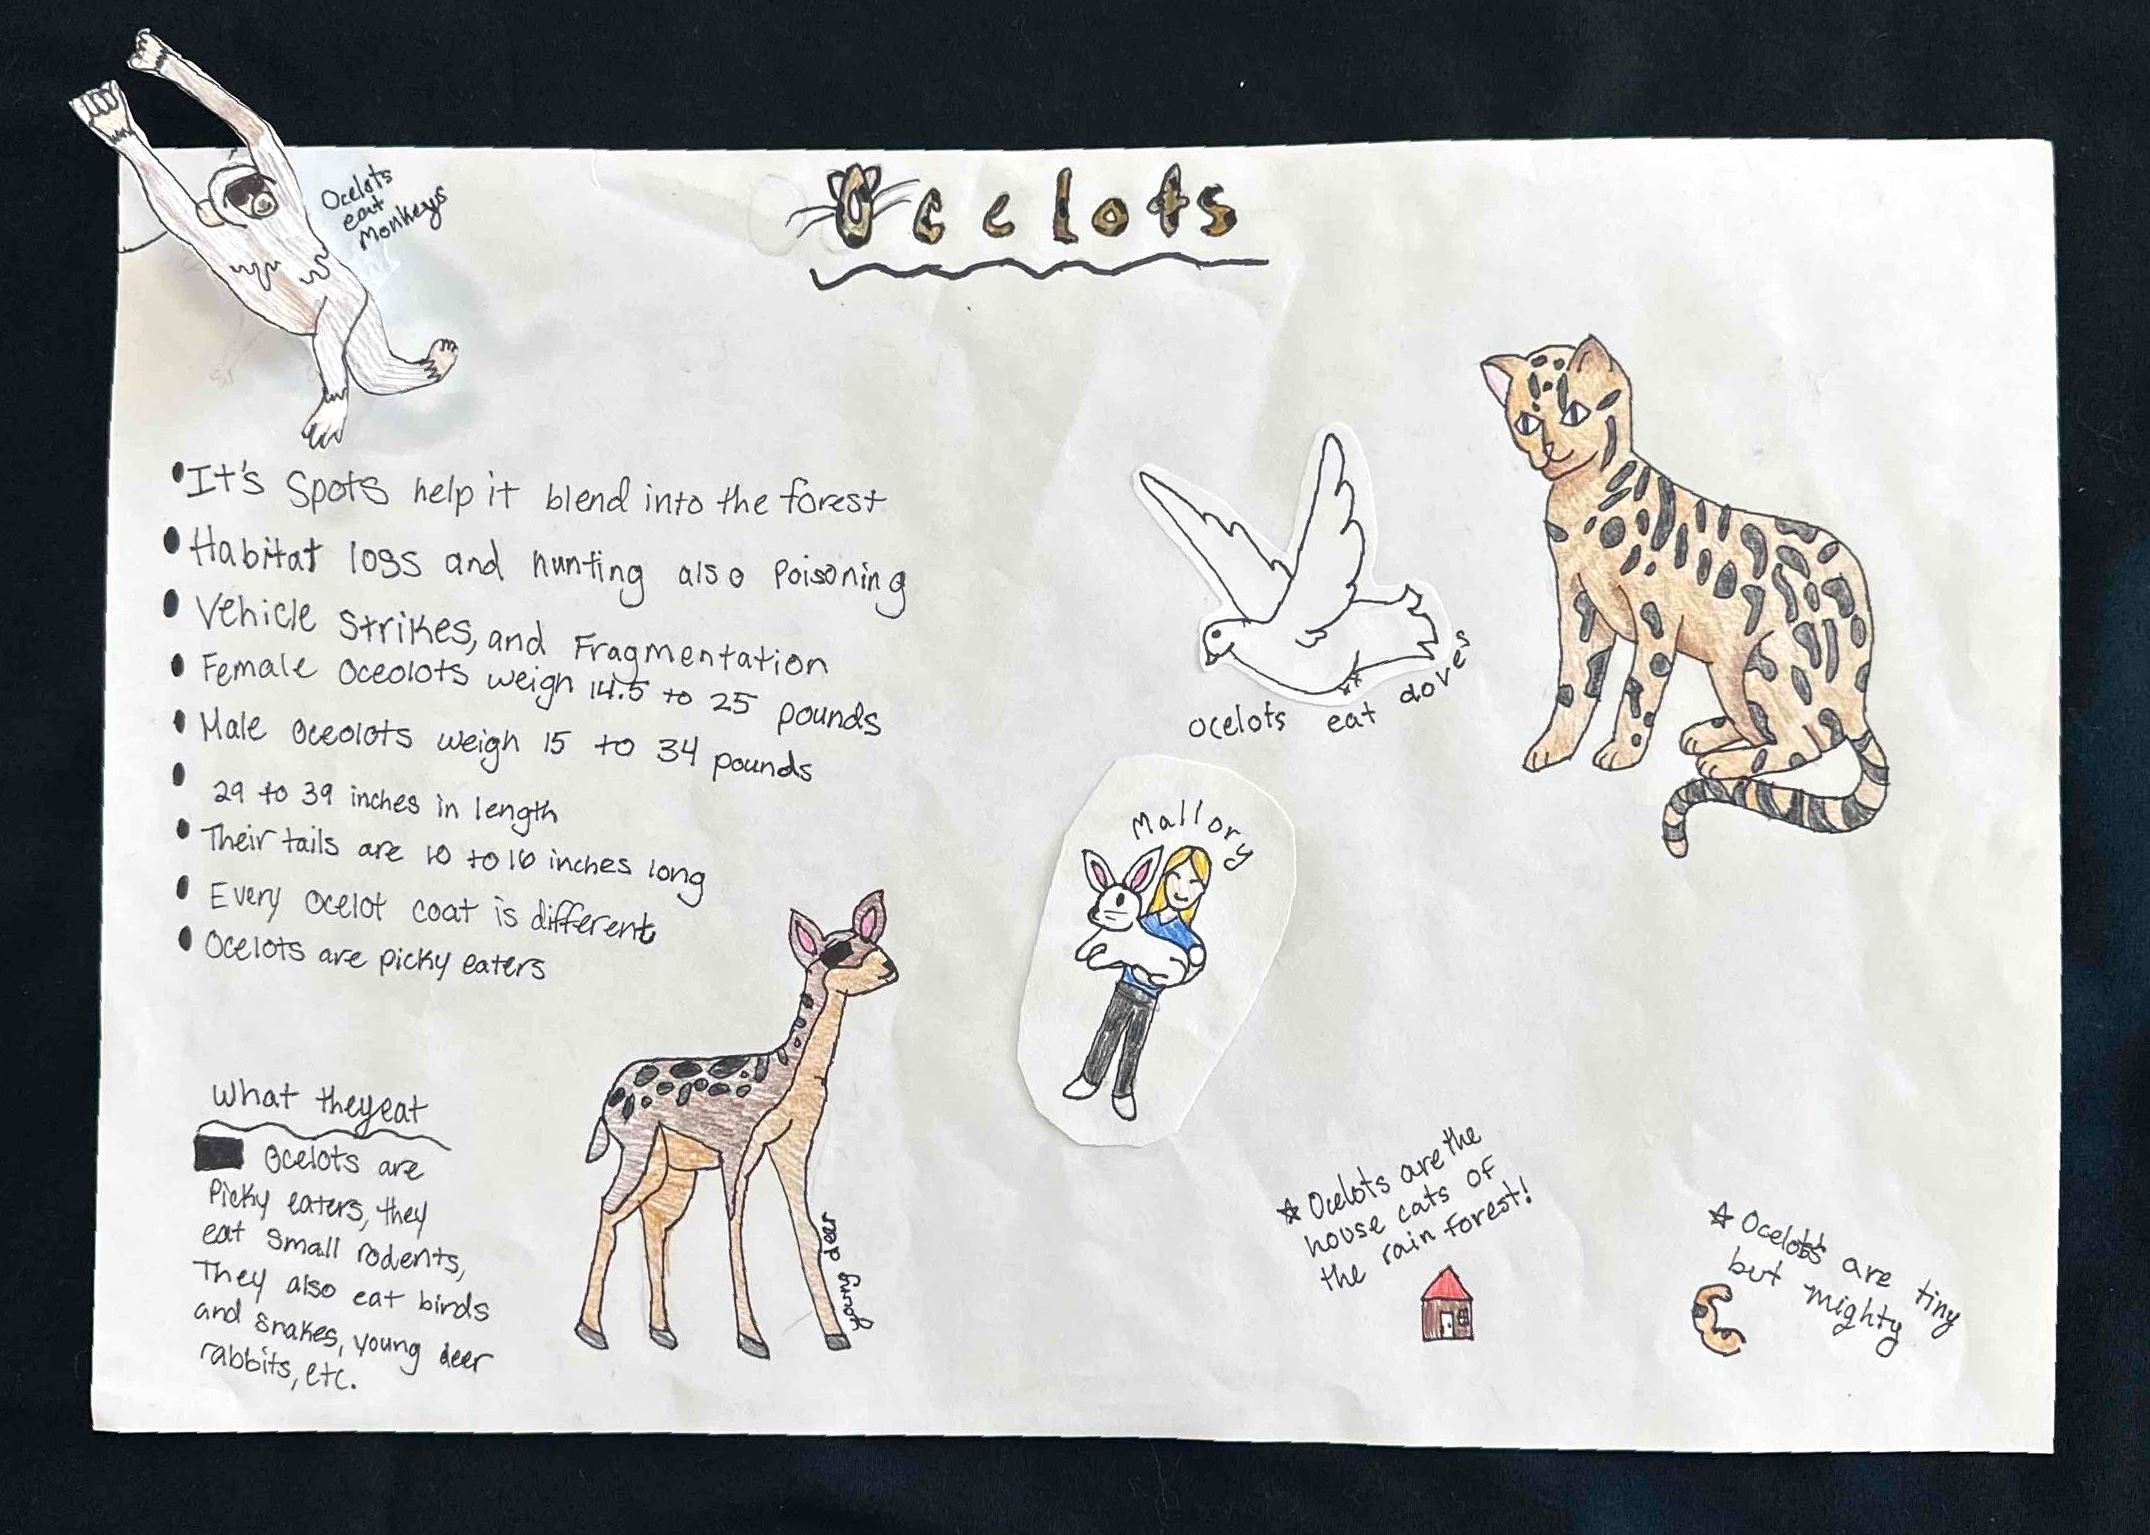 Ocelots
Ocelots
eat
Monkeys
It's Spots help it blend into the forest
Habitat loss and hunting also Poisoning
Vehicle Strikes, and Fragmentation
Female Oceolots weigh 14.5 to 25 pounds
Male Oceolots weigh 15 to 34 pounds
29 to 39 inches in length
Their tails are 10 to 16 inches long
Every Ocelot coat is different
Ocelots are picky eaters
What they eat
Ocelots are
Picky eaters, they
eat small rodents,
They also eat birds
and snakes, young deer
rabbits, etc.
young deer
ocelots eat doves
Mallory
☆ Ocelots are the
house cats of
the rain forest!
☆ Ocelots are tiny
but mighty